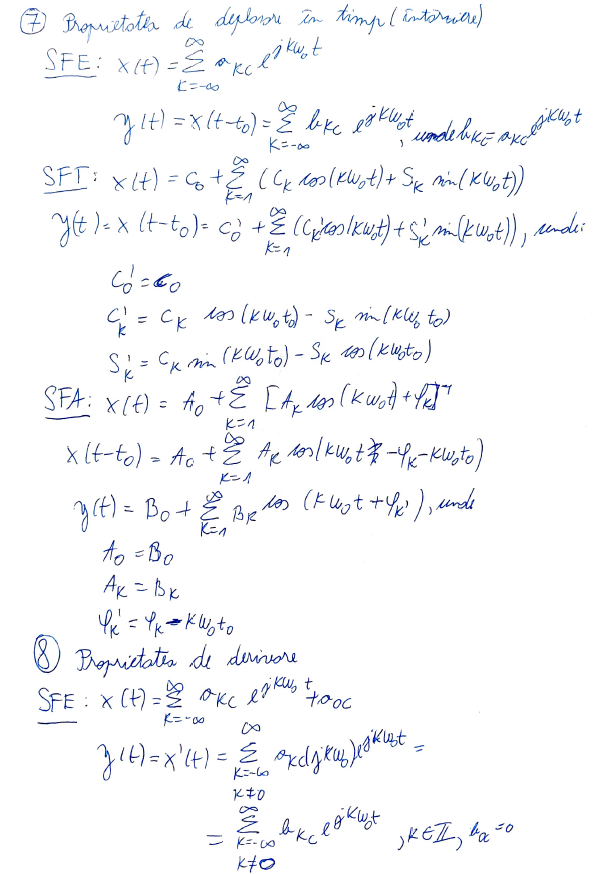 ⑦ Proprietatea de deplasare în timp (întârziere)
SFE: x(t) = ∑_{K=-∞}^{∞} a_{KC} e^{jKω₀t}
y(t) = x(t-t₀) = ∑_{K=-∞}^{∞} b_{KC} e^{jKω₀t}, unde b_{KC} = a_{KC} e^{jKω₀t}
SFT: x(t) = C₀ + ∑_{K=1}^{∞} (C_K cos(Kω₀t) + S_K sin(Kω₀t))
y(t) = x(t-t₀) = C₀' + ∑_{K=1}^{∞} (C_K' cos(Kω₀t) + S_K' sin(Kω₀t)), unde:
C₀' = C₀
C_K' = C_K cos(Kω₀t₀) - S_K sin(Kω₀t₀)
S_K' = C_K sin(Kω₀t₀) - S_K cos(Kω₀t₀)
SFA: x(t) = A₀ + ∑_{K=1}^{∞} [A_K cos(Kω₀t) + φ_K]
x(t-t₀) = A₀ + ∑_{K=1}^{∞} A_K cos(Kω₀t - φ_K - Kω₀t₀)
y(t) = B₀ + ∑_{K=1}^{∞} B_K cos(Kω₀t + φ_K'), unde
A₀ = B₀
A_K = B_K
φ_K' = φ_K - Kω₀t₀
⑧ Proprietatea de derivare
SFE: x(t) = ∑_{K=-∞}^{∞} a_{KC} e^{jKω₀t} + a_{0C}
y(t) = x'(t) = ∑_{K=-∞, K≠0}^{∞} a_{KC}(jKω₀) e^{jKω₀t} =
= ∑_{K=-∞, K≠0}^{∞} b_{KC} e^{jKω₀t}, K∈ℤ, = 0